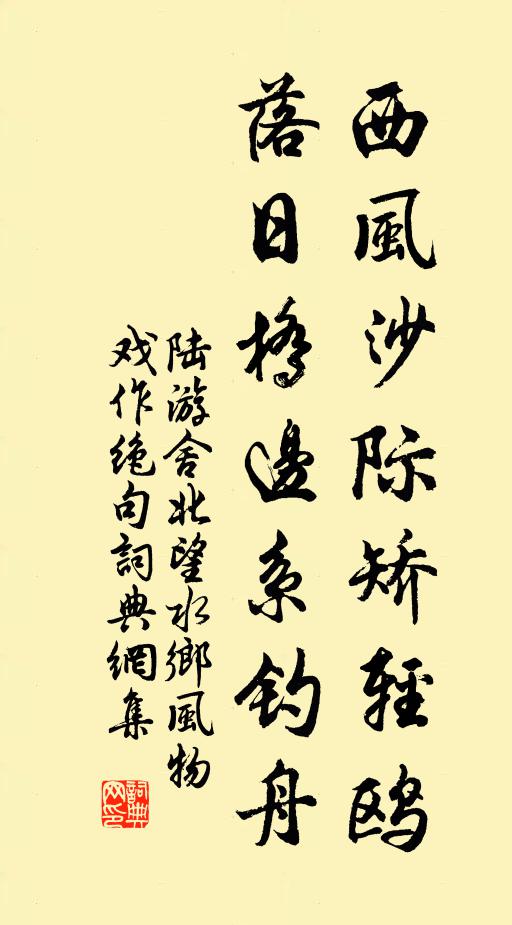 西風沙际矫輕鸥
落日橋邊系钓舟
陆游舍北望水鄉風物
戏作绝句詞典網集
詞典
网印